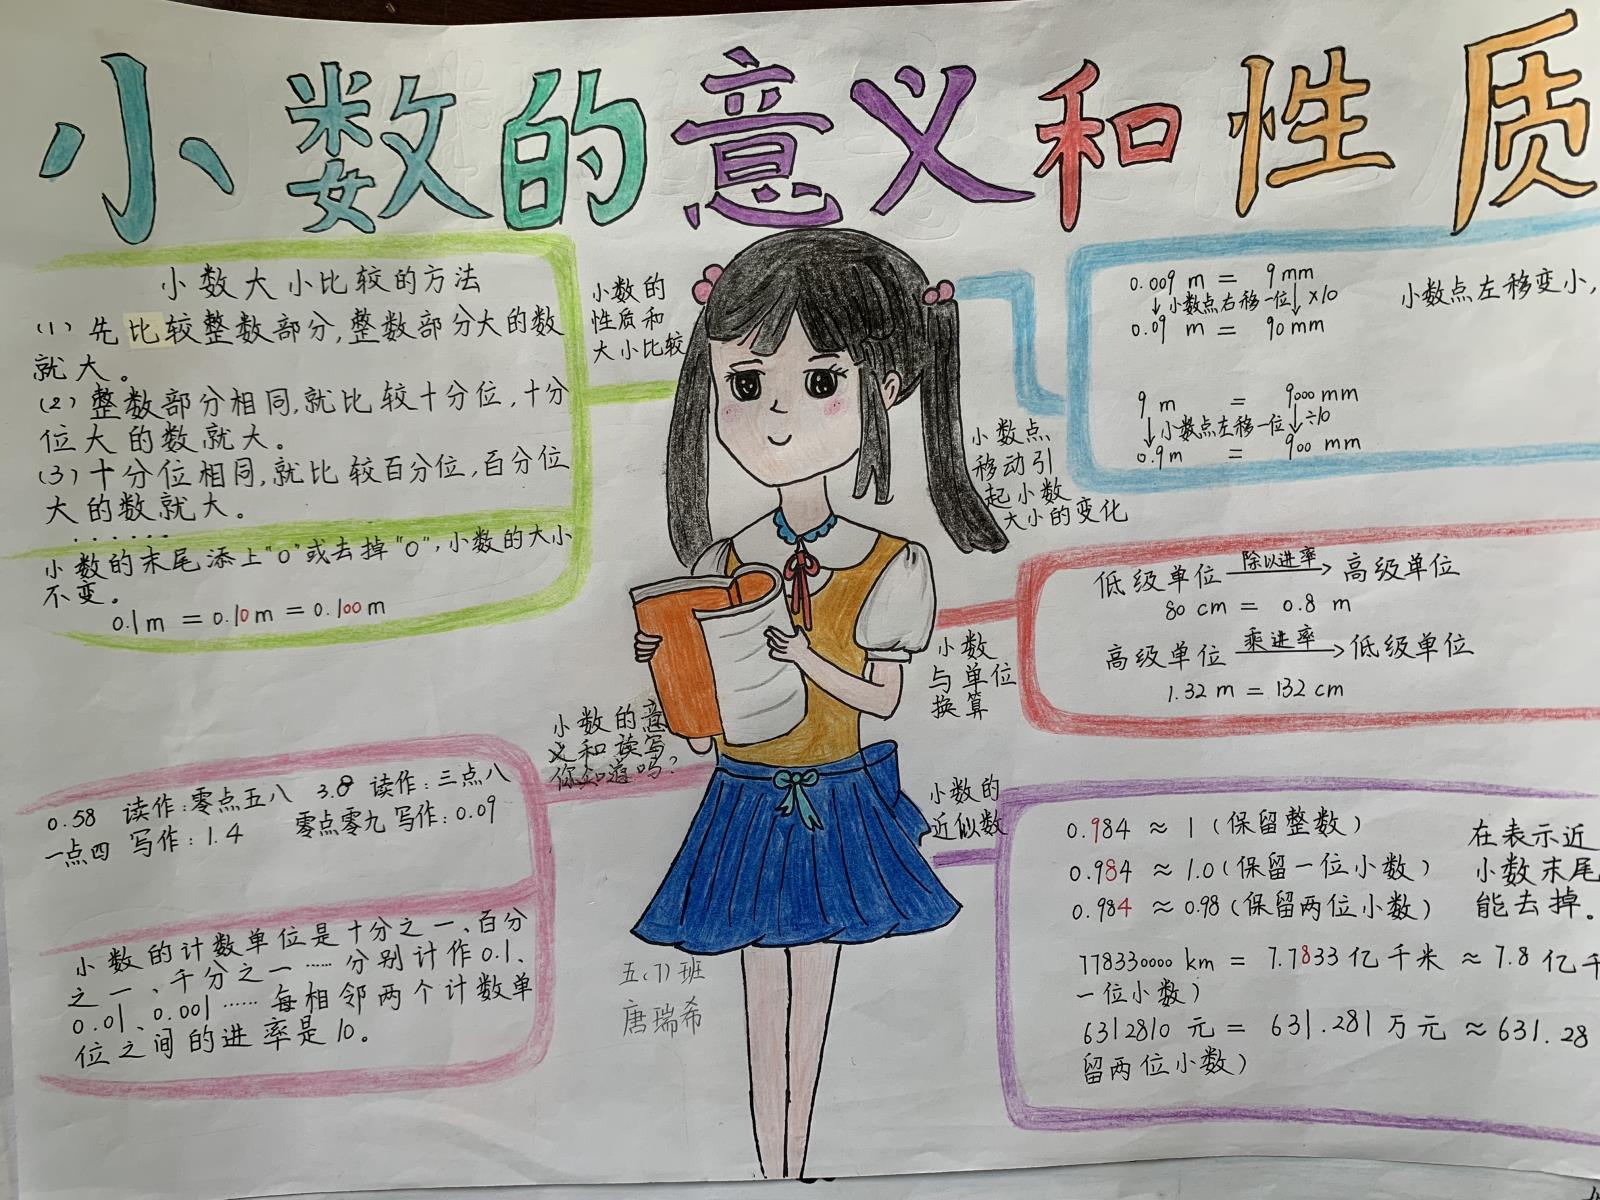 小数的意义和性质
小数大小比较的方法
(1) 先比较整数部分,整数部分大的数
就大。
(2) 整数部分相同,就比较十分位,十分
位大的数就大。
(3) 十分位相同,就比较百分位,百分位
大的数就大。
......
小数的末尾添上"0"或去掉"0",小数的大小
不变。
0.1m = 0.10m = 0.100m
小数的
性质和
大小比较
0.58 读作:零点五八 3.8 读作:三点八
一点四 写作:1.4 零点零九 写作:0.09
小数的计数单位是十分之一、百分
之一、千分之一……分别计作0.1、
0.01、0.001……每相邻两个计数单
位之间的进率是10。
小数的意
义和读写
你知道吗?
五(7)班
唐瑞希
0.009 m = 9 mm
↓小数点右移一位↓×10
0.09 m = 90 mm
小数点左移变小,
9 m = 9000 mm
↓小数点左移一位↓÷10
0.9m = 900 mm
小数点
移动引
起小数
大小的变化
低级单位 除以进率→ 高级单位
80 cm = 0.8 m
高级单位 乘进率→ 低级单位
1.32 m = 132 cm
小数
与单位
换算
小数的
近似数
0.984 ≈ 1 (保留整数)
0.984 ≈ 1.0 (保留一位小数)
0.984 ≈ 0.98 (保留两位小数)
在表示近
小数末尾
能去掉。
778330000 km = 7.7833 亿千米 ≈ 7.8 亿千
一位小数)
6312810 元 = 631.281 万元 ≈ 631.28
留两位小数)